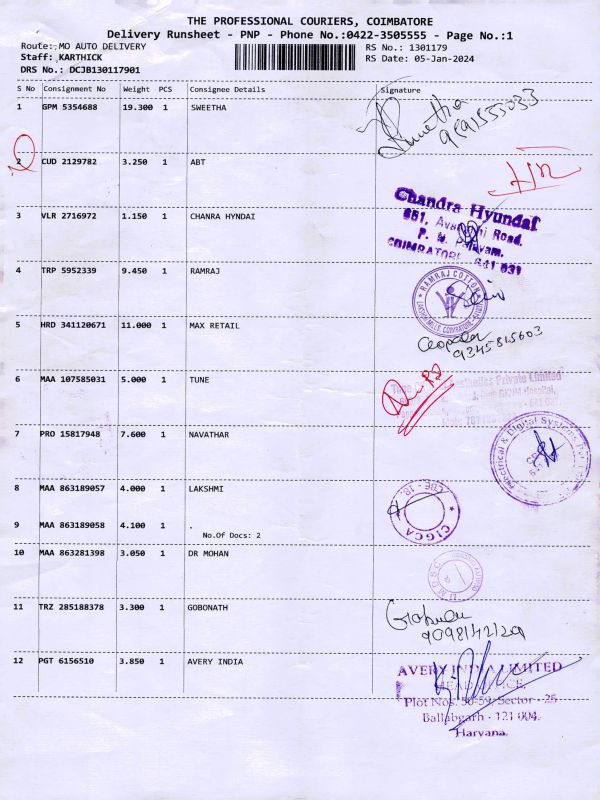 THE PROFESSIONAL COURIERS, COIMBATORE
Delivery Runsheet - PNP - Phone No.:0422-3505555 - Page No.:1
Route: MO AUTO DELIVERY RS No.: 1301179
Staff: KARTHICK RS Date: 05-Jan-2024
DRS No.: DCJB130117901
S No Consignment No Weight PCS Consignee Details Signature
1 GPM 5354688 19.300 1 SWEETHA
Swetha
2 CUD 2129782 3.250 1 ABT
3 VLR 2716972 1.150 1 CHANRA HYNDAI
Chandra Hyundai
Road.
COIMBATORE 641 031
4 TRP 5952339 9.450 1 RAMRAJ
RAMRAJ COTTON
5 HRD 341120671 11.000 1 MAX RETAIL
9345815603
6 MAA 107585031 5.000 1 TUNE
Private Limited
Hospital,
7 PRO 15817948 7.600 1 NAVATHAR
Electrical & Digital Systems
8 MAA 863189057 4.000 1 LAKSHMI
CIGCA
9 MAA 863189058 4.100 1 .
No.Of Docs: 2
10 MAA 863281398 3.050 1 DR MOHAN
11 TRZ 285188378 3.300 1 GOBONATH
9098142129
12 PGT 6156510 3.850 1 AVERY INDIA
AVERY INDIA LIMITED
Plot Nos. 50-59, Sector - 25
Ballabgarh - 121 004.
Haryana.